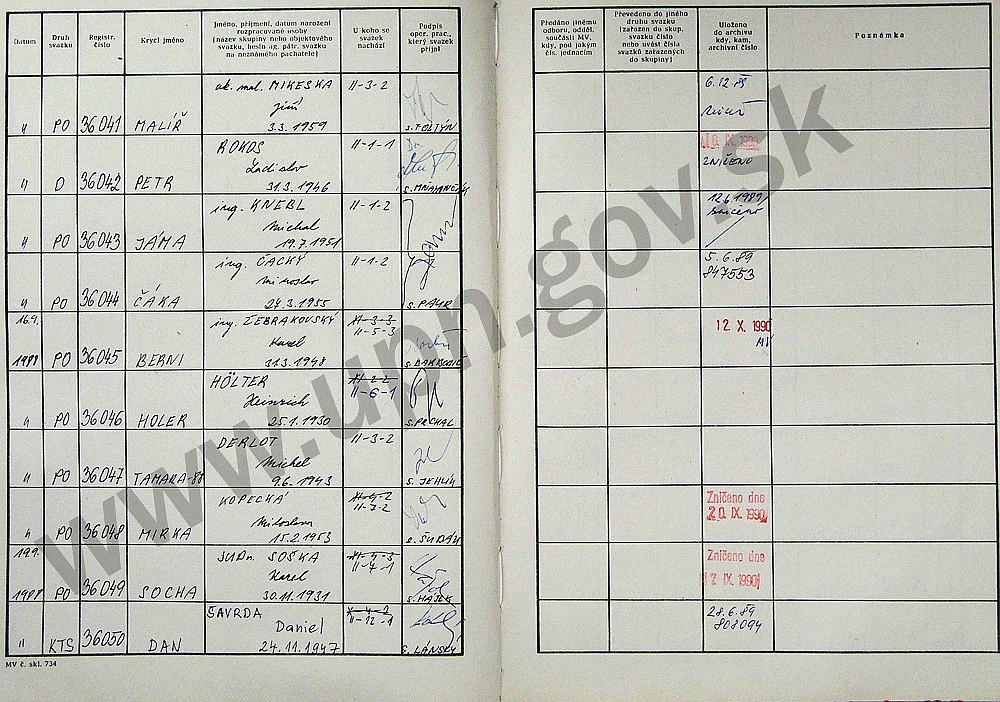 Datum
Druh svazku
Registr. číslo
Krycí jméno
Jméno, příjmení, datum narození
rozpracované osoby
(název skupiny nebo objektového
svazku, heslo ag. pátr. svazku
na neznámého pachatele)
U koho se
svazek
nachází
Podpis
oper. prac.,
který svazek
přijal
Předáno jinému
odboru, odděl.
součásti MV,
kdy, pod jakým
čís. jednacím
Převedeno do jiného
druhu svazku
(zařazen do skup.
svazku číslo
nebo uvést čísla
svazků zařazených
do skupiny)
Uloženo
do archivu
kdy, kam,
archivní číslo
Poznámka
ak. mal. MIKESKA II-3-2 6.12.89
Jiří
" PO 36041 MALÍŘ 3.3.1959 s. FOLTÝN
ROKOS II-1-1
Ladislav ZNIČENO
" O 36042 PETR 31.3.1946
ing. KNEBL II-1-2 12.6.1989
Michal zničeno
" PO 36043 JÁMA 19.7.1951
ing. ČACKÝ II-1-2 5.6.89
Miroslav 847553
" PO 36044 ČÁKA 24.3.1955 s. PAUR
16.9. ing. ŽEBRAKOVSKÝ XI-3-3
II-5-3 12. X. 1990
Karel MV
1988 PO 36045 BERNI 31.3.1948
HÖLTER XI-2-2
Heinrich II-6-1
" PO 36046 HOLER 25.1.1930 s. PRCHAL
DERLOT II-3-2
Michel
" PO 36047 TAMARA-88 9.6.1943 s. JEHLÍK
KOPECKÁ XI-4-2 Zničeno dne
II-7-2 20. IX. 1990
Miloslava
" PO 36048 MIRKA 15.2.1953 s. ŠUDÁK
19.9. JUDr. SOŠKA XI-4-3 Zničeno dne
Karel II-7-1 12 IX. 1990
1988 PO 36049 SOCHA 30.11.1931 s. HÁJEK
SAVRDA X-4-2 28.6.89
Daniel II-12-1 808094
" KTS 36050 DAN 24.11.1947 s. LÁNSKÝ
MV č. skl. 734
www.upn.gov.sk